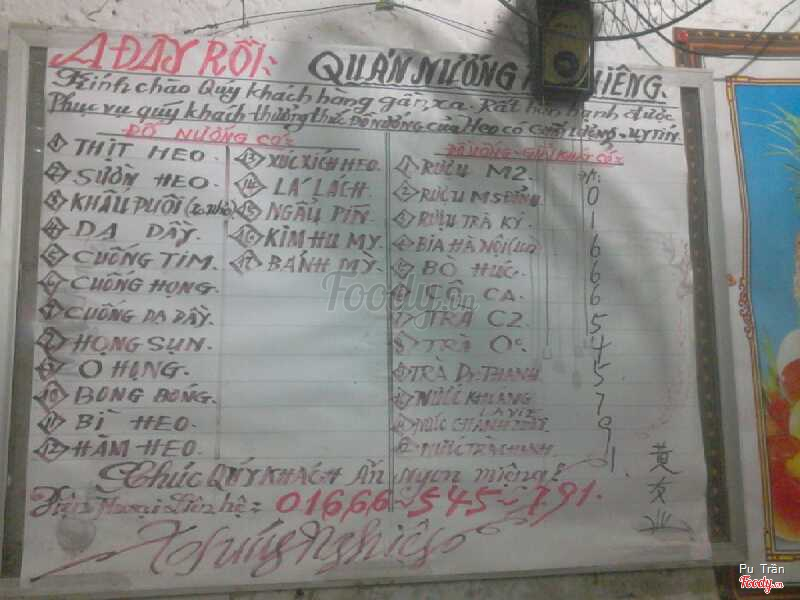 A ĐÂY RỒI:
QUÁN NƯỚNG
Kính chào Quý khách hàng gần xa. Rất hân hạnh được
Phục vụ quý khách thưởng thức Đồ nướng của Heo có uy tín
ĐỒ NƯỚNG CÓ:
1 THỊT HEO.
2 SƯỜN HEO.
3 KHẤU ĐUÔI
4 DA DẦY.
5 CUỐNG TIM.
6 CUỐNG HỌNG.
7 CUỐNG DA DẦY.
8 HỌNG SỤN.
9 O HỌNG.
10 BONG BÓNG.
11 BÌ HEO.
12 HÀM HEO.
13 XÚC XÍCH HEO.
14 LÁ LÁCH.
15 NGẨU PÍN.
16 KIM HU MY.
17 BÁNH MỲ.
1 RƯỢU M2.
2 RƯỢU
3 RƯỢU TRÀ KÝ.
4 BIA HÀ NỘI
5 BÒ HÚC.
6 CÔ CA.
7 TRÀ C2.
8 TRÀ O°.
9 TRÀ Dr THANH
10 NƯỚC KHOÁNG
LAVIE
11 NƯỚC CHANH
12 NƯỚC TRÀ CHANH.
0
1
6
6
6
5
4
5
7
9
1.
Chúc QUÝ KHÁCH Ăn Ngon miệng!
Điện Thoại Liên hệ: 01666 - 545 - 791.
黄
友
业
Foody.vn
Pu Trần
Foody.vn